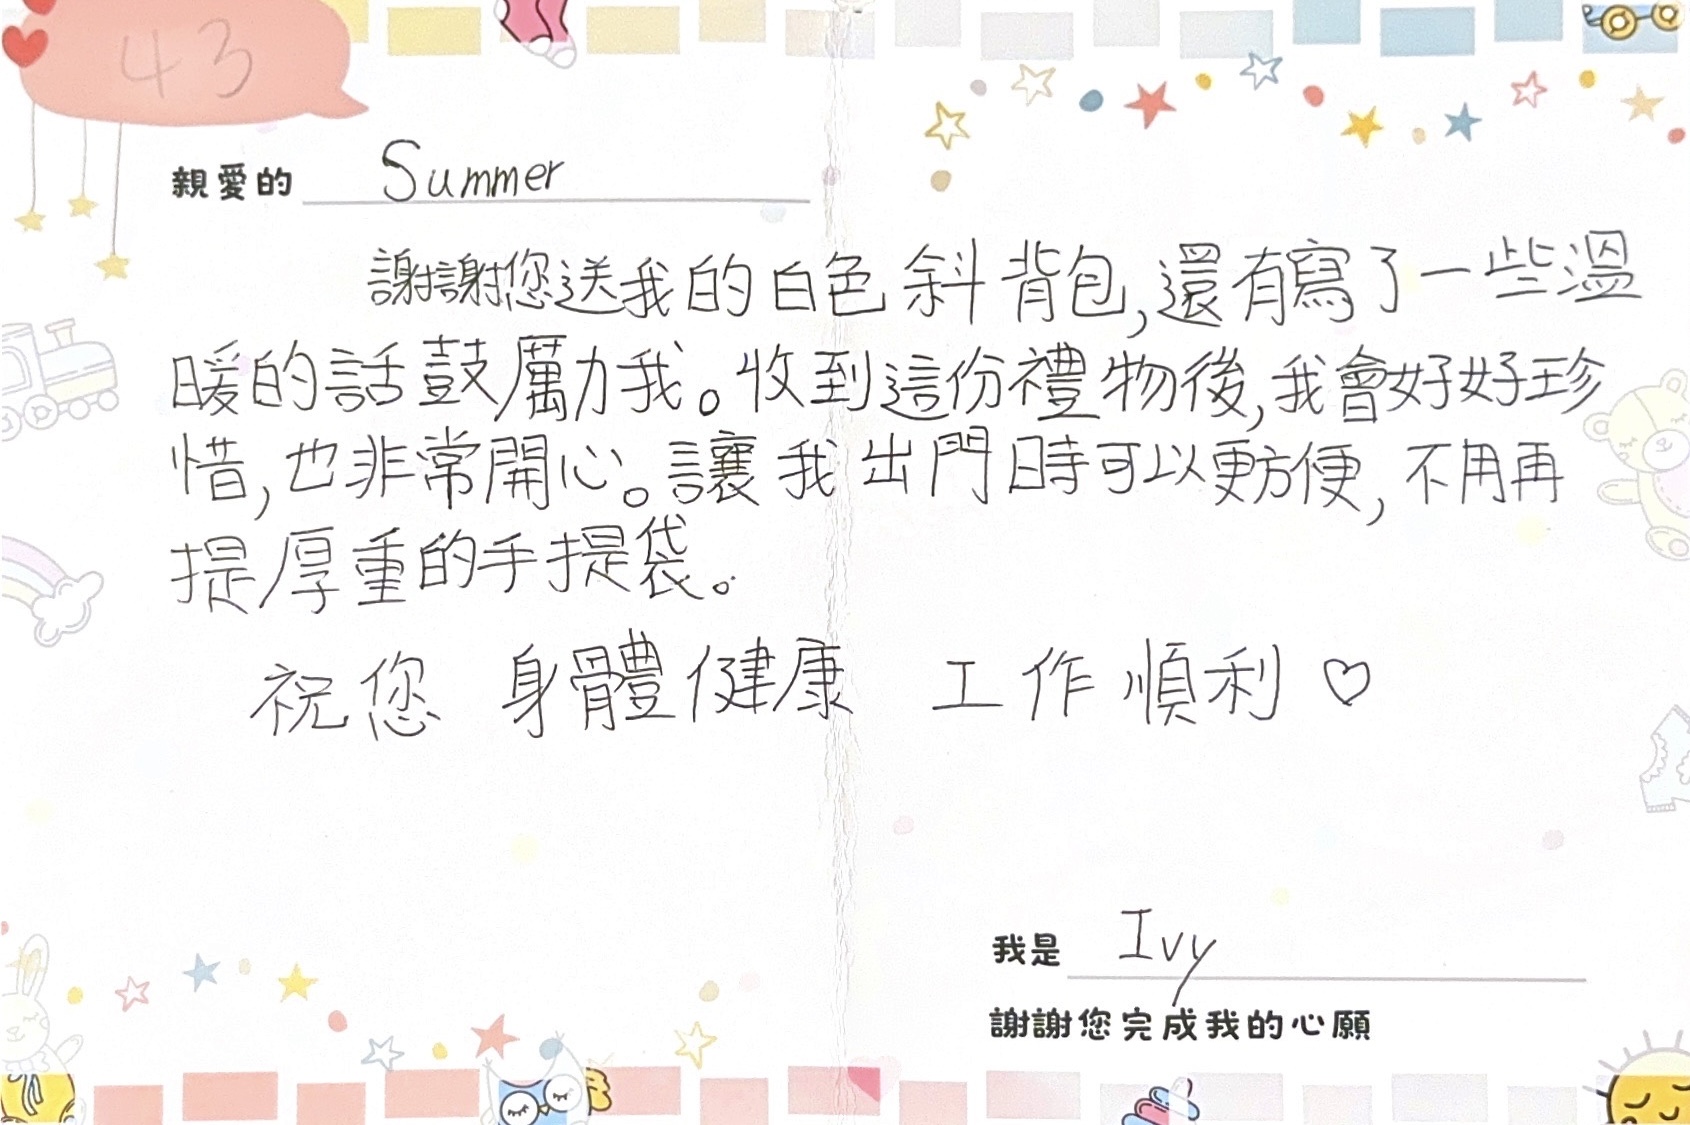 43
親愛的 Summer
謝謝您送我的白色斜背包,還有寫了一些溫
暖的話鼓厲力我。收到這份禮物後,我會好好珍
惜,也非常開心。讓我出門時可以更方便,不用再
提厚重的手提袋。
祝您 身體健康 工作順利♡
我是 Ivy
謝謝您完成我的心願